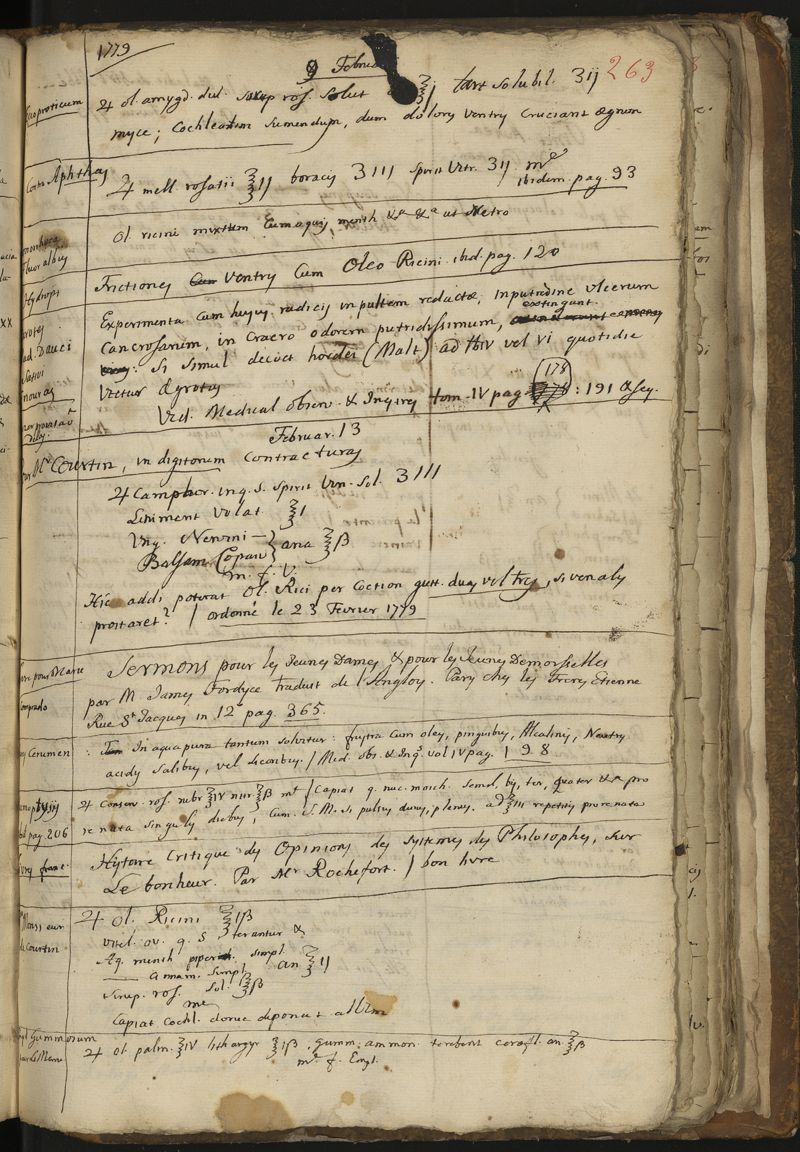 1779
9 Februa
263
♃ ol. amygd. dul. syrup ros. solut ℥j tart solubil. ʒij
myce; Cochleatim sumendum, dum dolory ventry Cruciant ægrum
Contra Aphthas
♃ mell. rosatii ℥ij boracis ʒiii Spirit Vitr. ʒij m
ibidem. pag. 93
Ol ricini mixtum Cum aquis menth &a &a ut Retro
fluor albus
Hydrops
Frictiones ventry Cum Oleo Ricini. ibid. pag. 120
Experimenta Cum hujus radicis in pultem redactæ, in putredine ulcerum
Cancrosarum, in Cracro odorem putridissimum, extingunt.
ad. Dauci
si simul decoct hordei (Malt) ad ℔iv vel vi quotidie
Utitur Ægrotus
Vid. Medical observ. & Inqirys tom. IV pag. 178 : 191 & seq.
Februar. 13
pour Mr Courtin, in digitorum Contracturas
♃ Camphor. ing. s. Spirit Vin. Sol. ʒiii
Liniment Volat ℥i
Ung. Nervini —
Balsam Copaiv } ana ℥ß
m. f. U.
Hic addi poterat Ol. Rici per Coction gutt. duas vel tres, si venalis
prostaret? / ordonné le 23 Fevrier 1779
livre pour Marie
Comprado
Sermons pour les Jeunes Dames & pour les Jeunes Demoiselles
par M James Fordyce traduit de l'Anglois. Paris chez les Freres Etienne
Rue St Jacques in 12 pag. 365.
Cerumen
In aqua pura tantum solvitur: frustra Cum oleis, pinguibus, Alcalinis, Neutris
acidis Salibus, vel liccoribus. / Med. obs. & Inq. vol IV pag. 198
ibid pag. 206
♃ Conserv. ros. rubr ℥iv nitr ℥ß m / Capiat q. nuc. mosch. semel, bis, ter, quater &a pro
re nata singulis diebus, Cum. V.S. Si pulsus durus, plenus. ad ℥iii repetitis pro re nata
livres franc.
Hystoire Critique des Opinions des Systemes des Philosophes, sur
Le bonheur. Par Mr Rochefort. / bon livre
Monsieur
de Courtin
♃ Ol. Ricini ℥iß
vitel. ov. q. s terantur &
Aq. menth piperit. simpl.
—— Cinnam. Simpl an ℥ij
Sirup. ros. Sol. ℥ß
Capiat Cochl. donec deponat alvum
Empl Gummosum
♃ ol. palm. ℥iv lithargyr ℥iß. gumm. ammon. terebint an ℥ß
m. f. Empl.